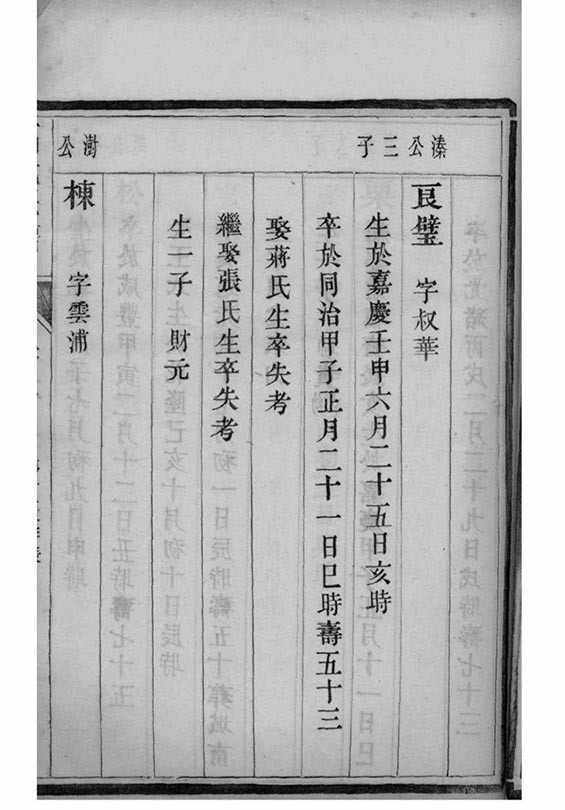 溱公三子
良璧 字叔華
生於嘉慶壬申六月二十五日亥時
卒於同治甲子正月二十一日巳時壽五十三
娶蔣氏生卒失考
繼娶張氏生卒失考
生一子 財元
澍公
棟 字雲浦